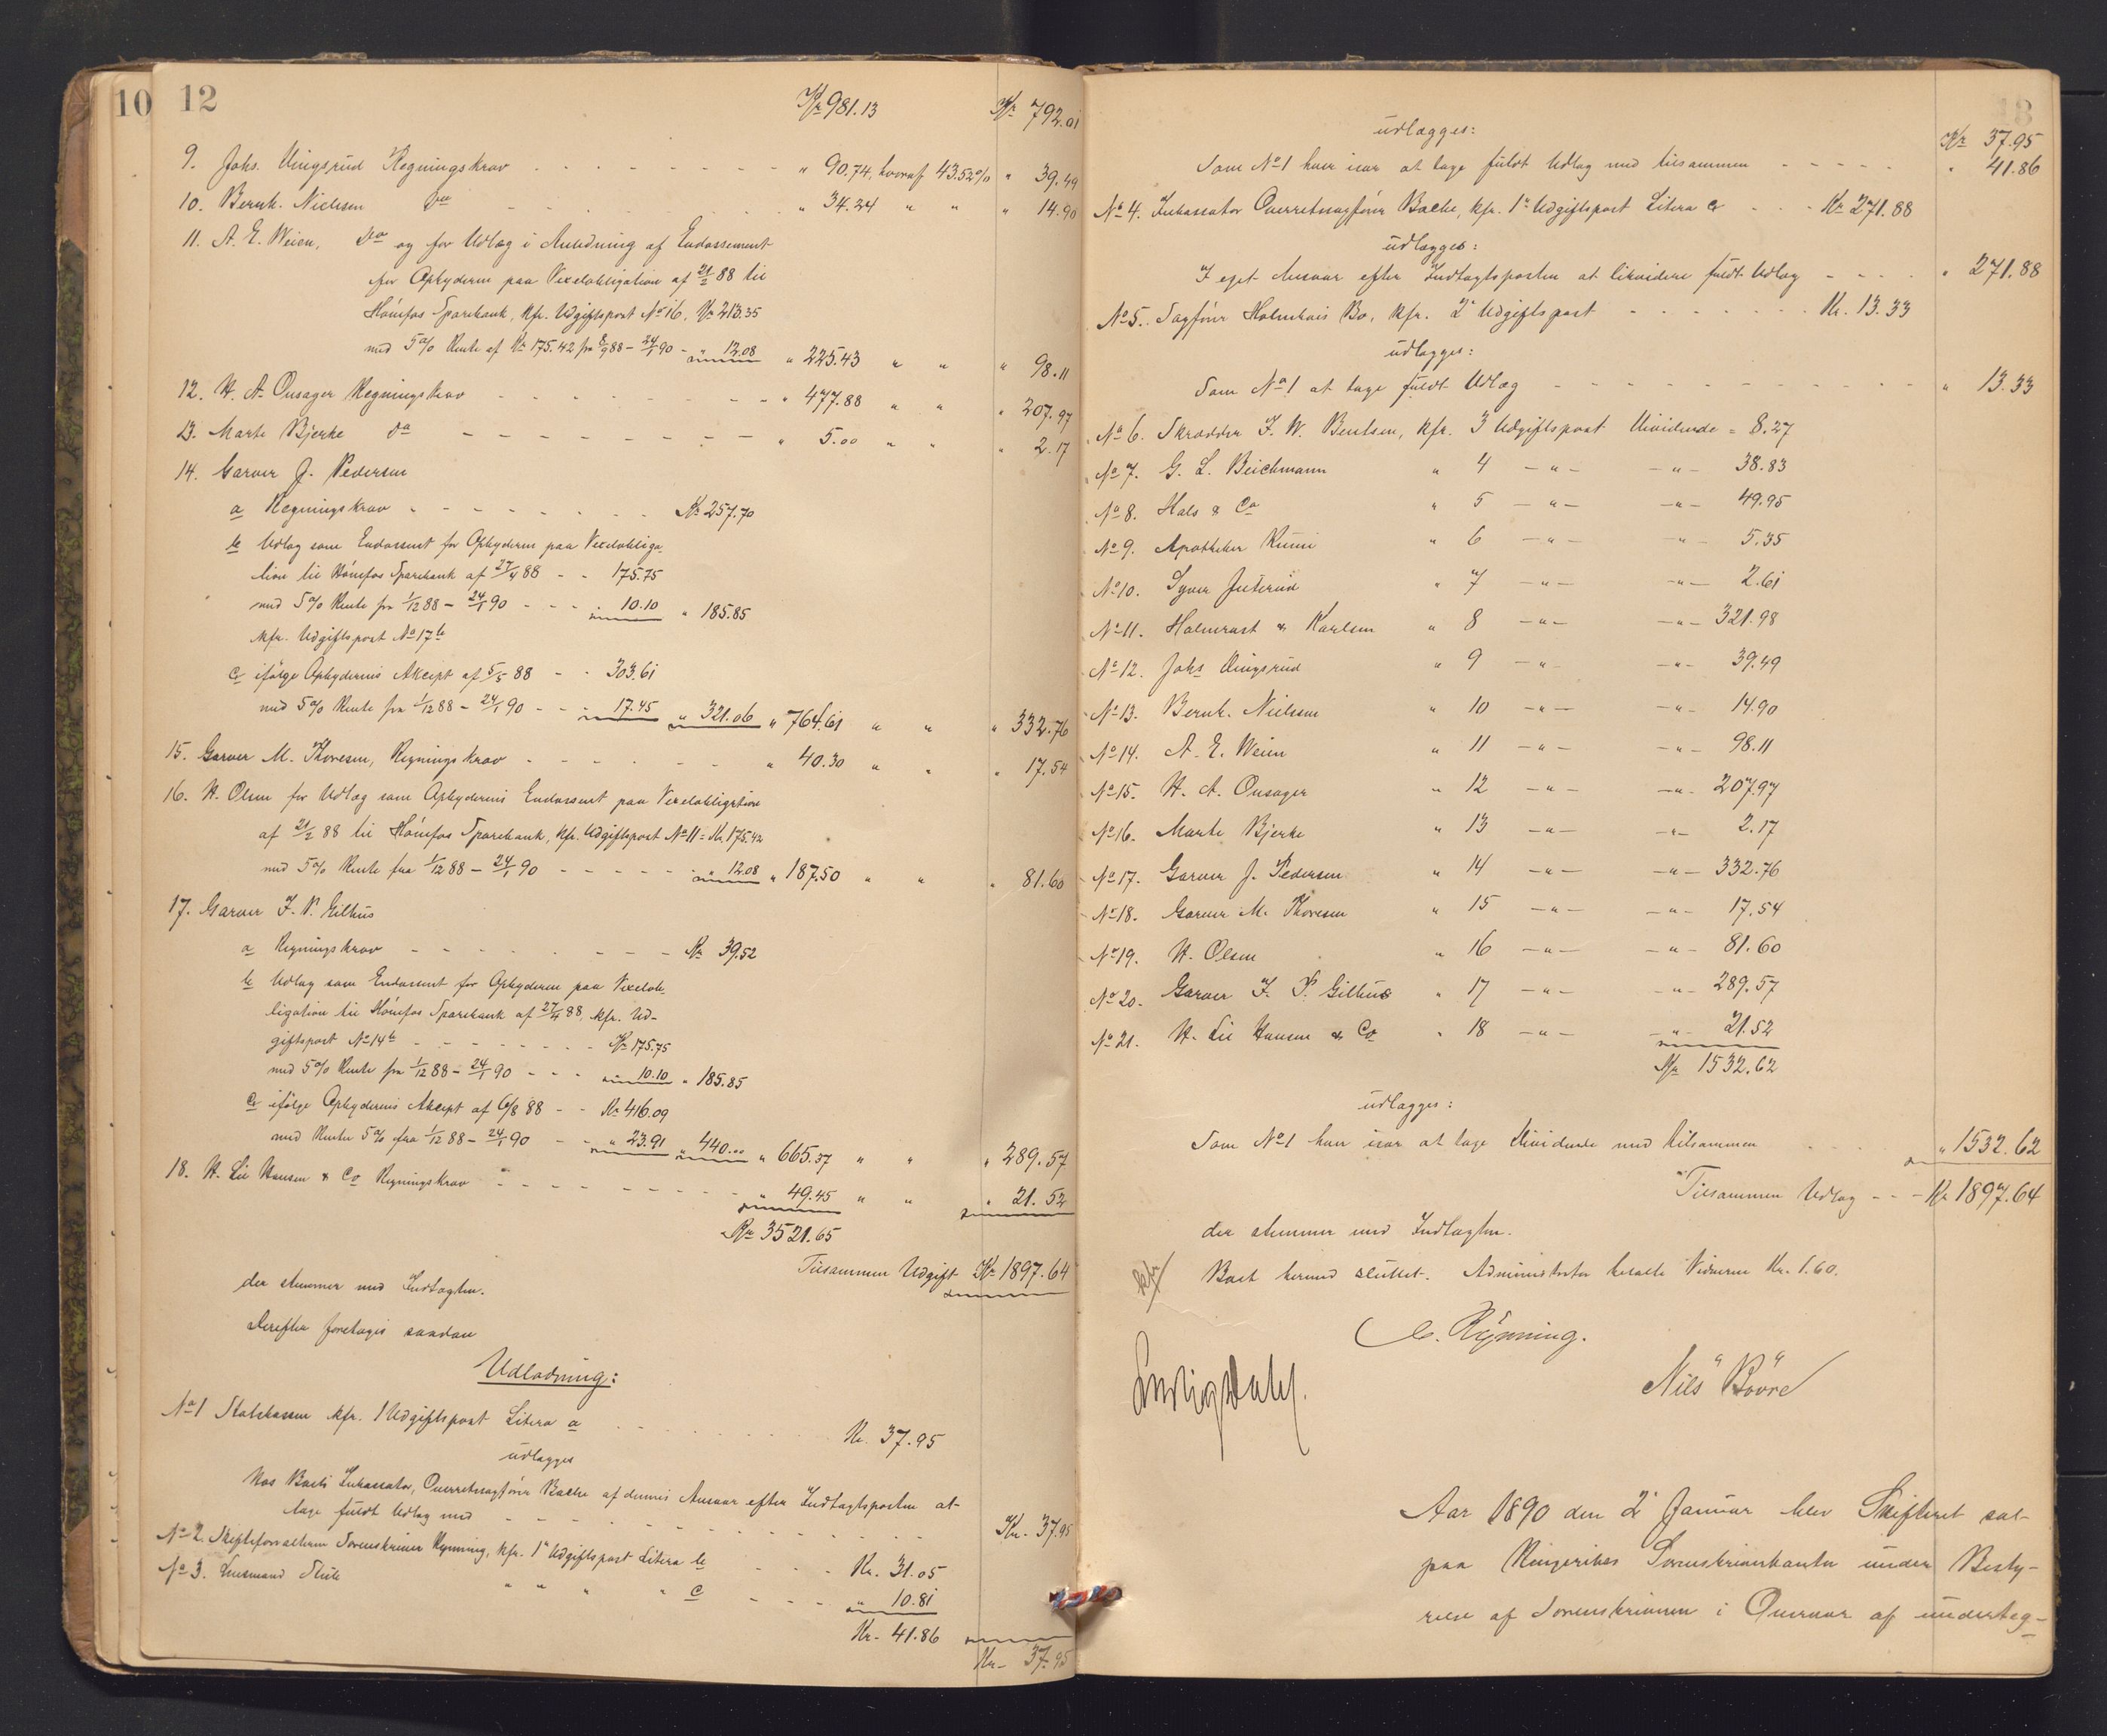 10
12
Kr 981.13 Kr 792.01
9. Johs. Vingsrud Regningskrav - - - - - - - - " 90.74, hvoraf 43.52% " 39.49
10. Bernh. Nielsen Do - - - - - " 34.24 " " " 14.90
11. A. E. Weien, Do og for Udlæg i Anledning af Endossement
for Opbyderen paa Vexelobligation af 21/2 88 til
Hönefos Sparebank, kfr. Udgiftspost No 16, Kr 213.35
med 5% Rente af Kr 175.42 fra 8/9 88 - 24/1 90 - " 12.08 " 225.43 " " " 98.11
12. H. A. Onsager Regningskrav - - - - - - - - " 477.88 " " " 207.97
13. Marte Bjerke do - - - - - - - - " 5.00 " " " 2.17
14. Garver J. Pedersen
a Regningskrav - - - - - - - Kr 257.70
b Udlæg som Endossent for Opbyderen paa Vexelobliga-
tion til Hönefos Sparebank af 27/4 88 - - 175.75
med 5% Rente fra 1/12 88 - 24/1 90 - - - " 10.10 " 185.85
kfr. Udgiftspost No 17 b
c ifølge Opbyderens Akcept af 5/5 88 - - 303.61
med 5% Rente fra 1/12 88 - 24/1 90 - - " 17.45 " 321.06 " 764.61 " " " 332.76
15. Garver M. Thoresen, Regningskrav - - - - - - " 40.30 " " " 17.54
16. H. Olsen for Udlæg som Opbyderens Endossent paa Vexelobligation
af 21/2 88 til Hönefos Sparebank, kfr. Udgiftspost No 11 = Kr. 175.42
med 5% Rente fra 1/12 88 - 24/1 90 - - - - - " 12.08 " 187.50 " " " 81.60
17. Garver F. P. Gilhus
a Regningskrav - - - - - - - - Kr 39.52
b Udlæg som Endossent for Opbyderen paa Vexelob-
ligation til Hönefos Sparebank af 27/4 88, kfr. Ud-
giftspost No 14 b - - - - - - - - Kr 175.75
med 5% Rente fra 1/12 88 - 24/1 90 - - - " 10.10 " 185.85
c ifölge Opbyderens Akcept af 6/8 88 - - Kr 416.09
med Renter 5% fra 1/12 88 - 24/1 90 - - " 23.91 " 440.00 " 665.37 " " " 289.57
18. H. Lie Hansen & Co Regningskrav - - - - - - - - " 49.45 " " " 21.52
Kr 3521.65
Tilsammen Udgift Kr 1897.64
der stemmer med Indtægten.
Derefter foretages saadan
Udlodning:
No 1 Statskassen kfr. 1 Udgiftspost Litera a - - - - - - - Kr. 37.95
udlægges
Hos Boets Inkassator, Overretssagförer Bache af dennes Ansvar efter Indtægtsposten at
tage fuldt Udlæg med - - - - - - - - - - Kr. 37.95
No 2. Skifteforvalteren Sorenskriver Rynning, kfr. 1' Udgiftspost Litera b - - - Kr. 31.05
No 3. Lensmand " " " " c - - - " 10.81
Kr. 41.86
Kr. 37.95
13
Kr 37.95
udlægges:
Som No 1 hver især at tage fuldt Udlæg med tilsammen - - - - - " 41.86
No 4. Inkassator Overretssagförer Bache, kfr. 1' Udgiftspost Litera c - - - Kr 271.88
udlægges:
I eget Ansvar efter Indtægtsposten at likvidere fuldt Udlæg - - - - " 271.88
No 5. Sagförer Bo, kfr. 2' Udgiftspost - - - - - - - Kr. 13.33
udlægges:
Som No 1 at tage fuldt Udlæg - - - - - - - - - - - " 13.33
No 6. Skrædder F. W. Bentsen, kfr. 3 Udgiftspost Dividende = 8.27
No 7. G. L. Beichmann " 4 - " - - " - 38.83
No 8. Hals & Co " 5 - " - - " - 49.95
No 9. Apotheker " 6 - " - - " - 5.35
No 10. Syver " 7 - " - - " - 2.61
No 11. Holmrast & Karlsen " 8 - " - - " - 321.98
No 12. Johs Vingsrud " 9 - " - - " - 39.49
No 13. Bernh. Nielsen " 10 - " - - " - 14.90
No 14. A. E. Weien " 11 - " - - " - 98.11
No 15. H. A. Onsager " 12 - " - - " - 207.97
No 16. Marte Bjerke " 13 - " - - " - 2.17
No 17. Garver J. Pedersen " 14 - " - - " - 332.76
No 18. Garver M. Thoresen " 15 - " - - " - 17.54
No 19. H. Olsen " 16 - " - - " - 81.60
No 20. Garver F. P. Gilhus " 17 - " - - " - 289.57
No 21. H. Lie Hansen & Co " 18 - " - - " - 21.52
Kr 1532.62
udlægges:
Som No 1 hver især at tage Dividende med tilsammen - - - " 1532.62
Tilsammen Udlæg - - - Kr 1897.64
der stemmer med Indtægten.
Boet hermed sluttet. Administrator betalte Vidnerne Kr. 1.60.
C. Rynning.
Nils Bööre
Aar 1890 den 2' Januar blev Skifteret sat
paa Ringerikes Sorenskriverkontor under Besty-
relse af Sorenskriveren i Overvær af underteg-